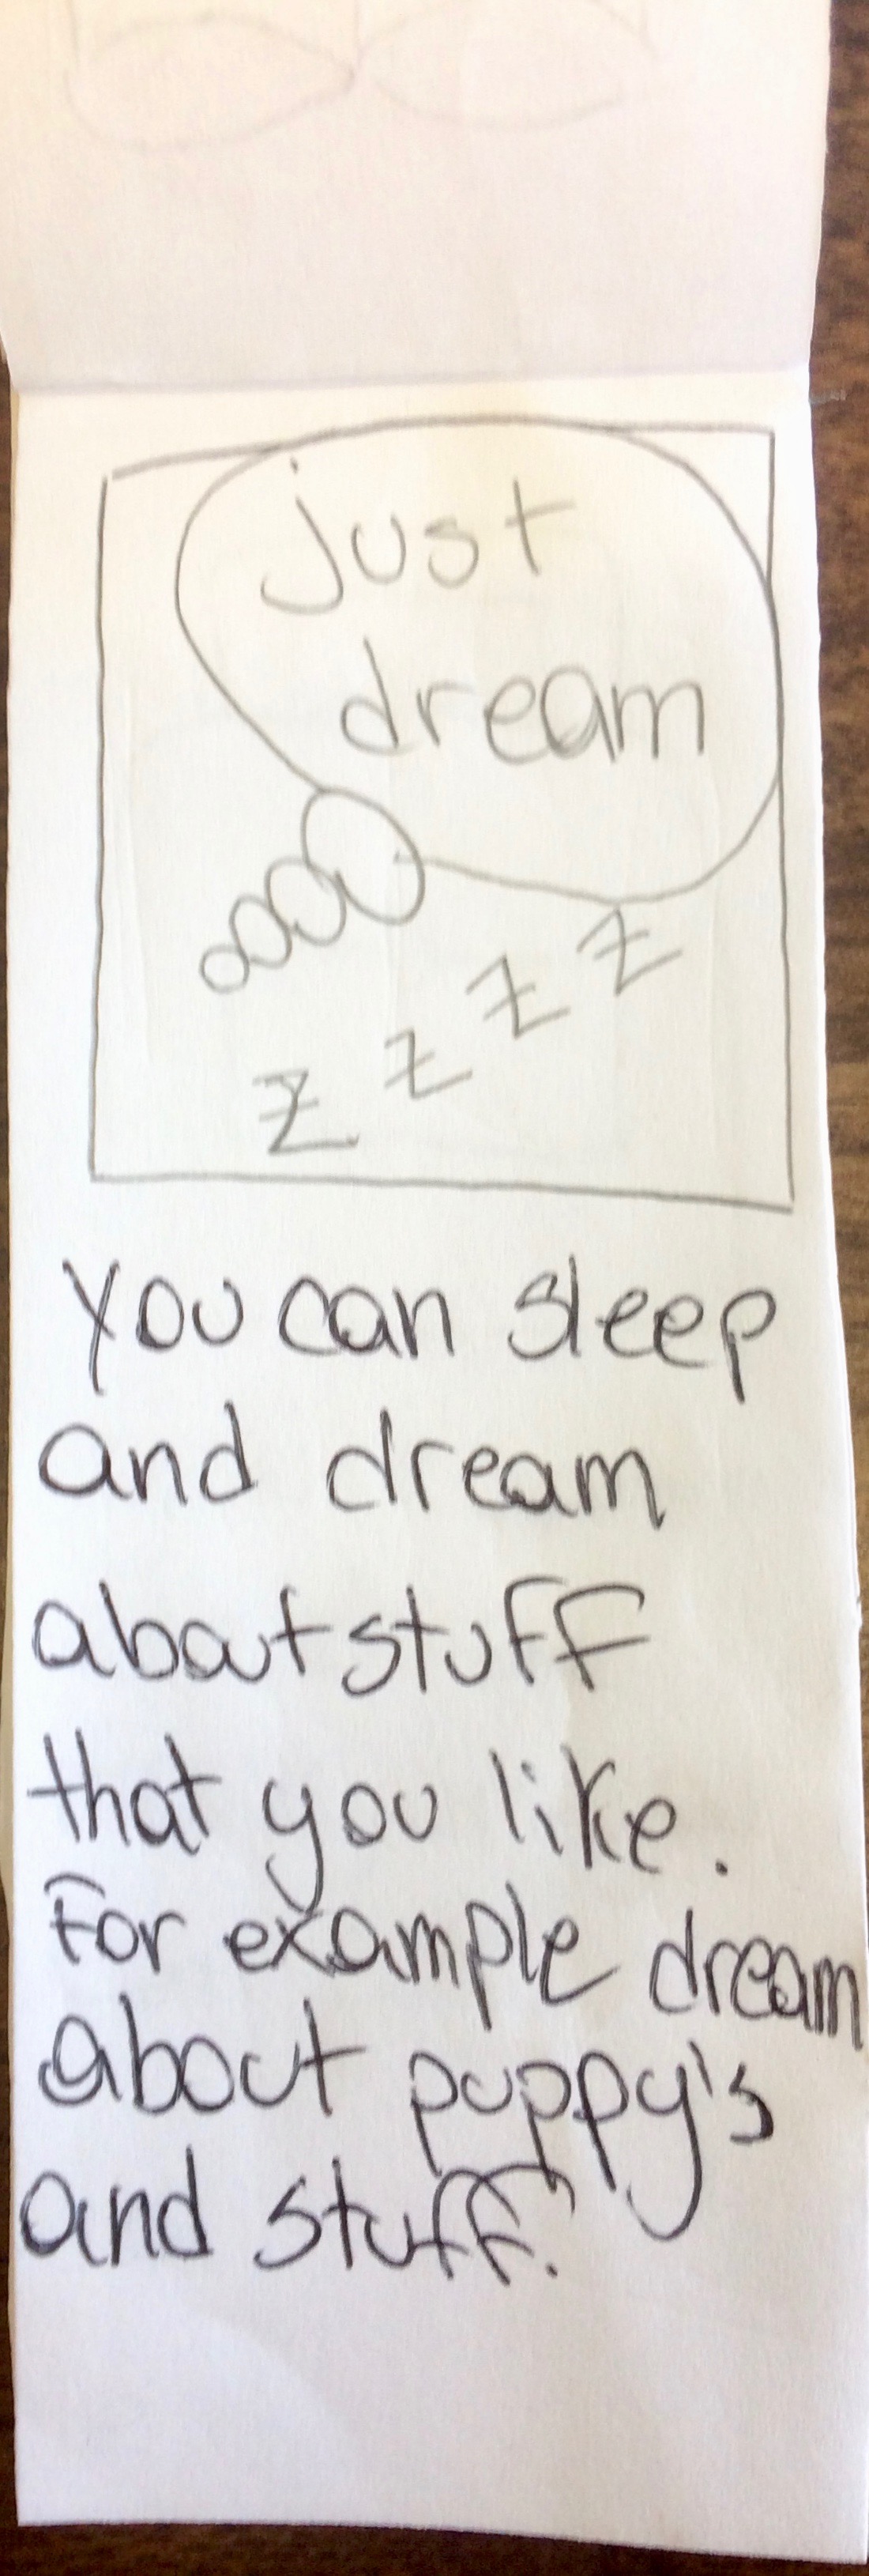 just
dream
z z z z
You can sleep
and dream
about stuff
that you like.
For example dream
about puppy's
and stuff.